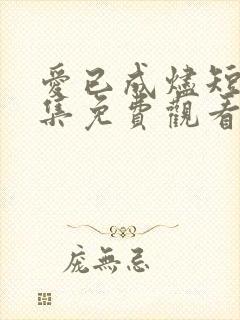 愛已成燼短
集免費觀看
庞無忌